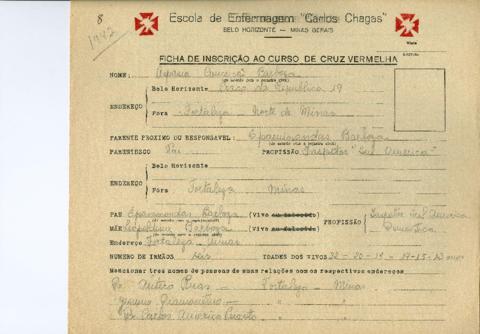 8
1942
Escola de Enfermagem "Carlos Chagas"
BELO HORIZONTE — MINAS GERAIS
FICHA DE INSCRIÇÃO AO CURSO DE CRUZ VERMELHA
NOME: Aspasia Barboza
(de acordo com o registro civil)
Belo Horizonte Praça da Republica 19
ENDEREÇO
Fora Fortaleza - Norte de Minas
PARENTE PROXIMO OU RESPONSAVEL: Epaminondas Barboza
(de acordo com o registro civil)
PARENTESCO Pai PROFISSÃO Inspetor "Sul America"
Belo Horizonte
ENDEREÇO
Fóra Fortaleza Minas
PAE Epaminondas Barboza (vivo ou falecido) Inspetor Sul America
PROFISSÃO
MÃE Leopoldina Barboza (viva ou falecida) Domestica
Endereço Fortaleza Minas
NUMERO DE IRMÃOS seis IDADES DOS VIVOS 22-20-18-17-15-13 anos
Mencionar tres nomes de pessoas de suas relações com os respectivos endereços
Dr. Antero Ruas — Fortaleza - Minas
Dr Carlos Americo